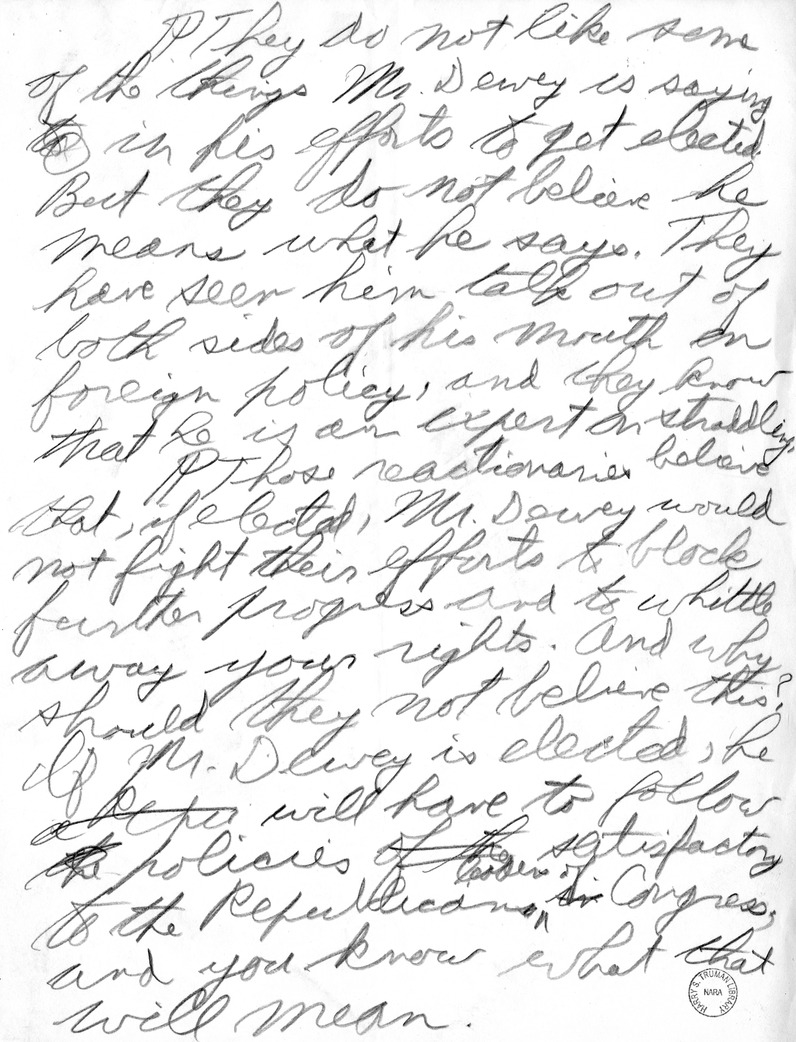 ¶ They do not like some
of the things Mr. Dewey is saying
in his efforts to get elected.
But they do not believe he
means what he says. They
have seen him talk out of
both sides of his mouth on
foreign policy, and they know
that he is an expert on straddling.
¶ Those reactionaries believe
that, if elected, Mr. Dewey would
not fight their efforts to block
further progress and to whittle
away your rights. And why
should they not believe this?
If Mr. Dewey is elected, he
will have to follow
policies of the satisfactory
leaders of
to the Republican in Congress,
and you know what that
will mean.
HARRY S. TRUMAN LIBRARY
NARA